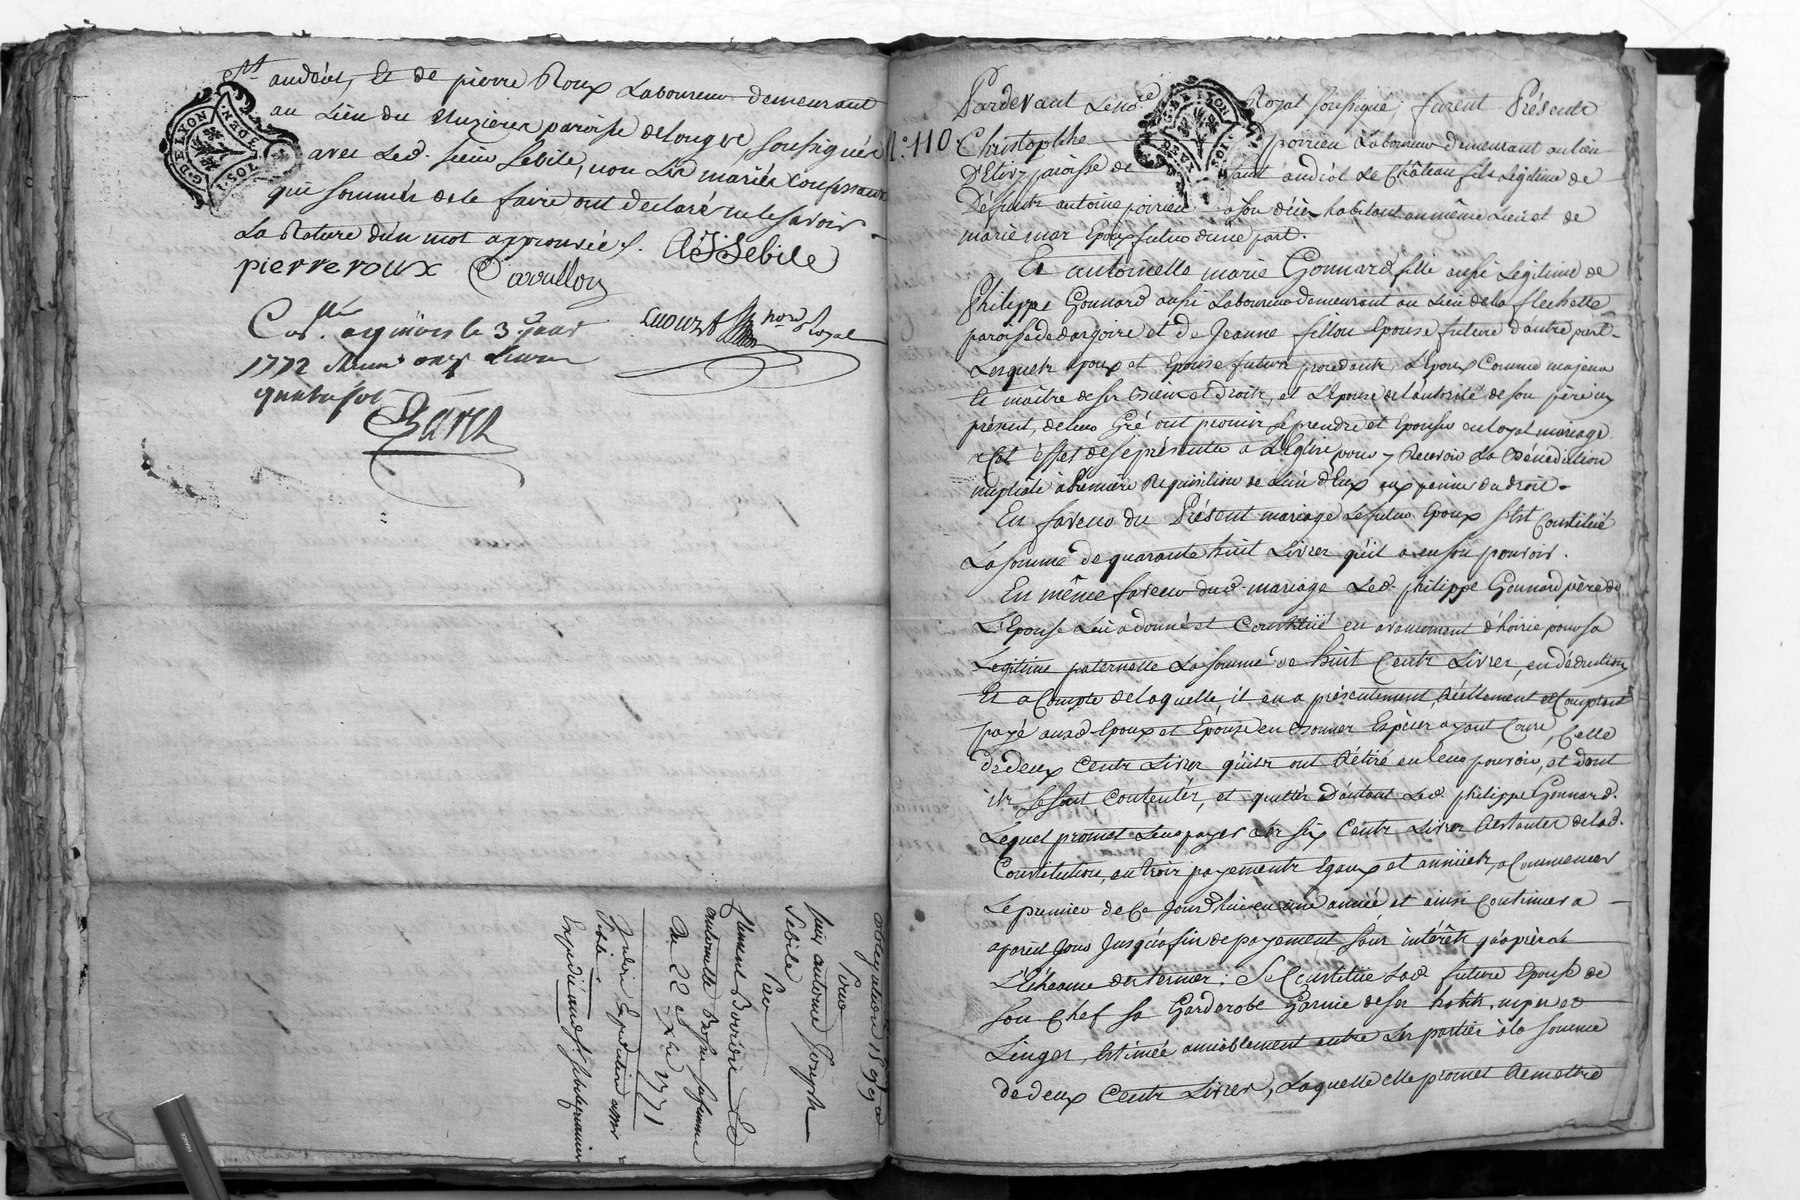 andéol, Et de pierre Roux Laboureur demeurant
au Lieu du Muzieres paroisse de longve soussignés
avec Led. sieur Sebile, non Les mariés Confessants
qui sommés de le faire ont declaré ne le savoir
La Rature d'un mot approuvée ./.
pierre roux Cavallon A: J: Sebile
Con.lle a rgivors le 3. janv.
1772 Reçu onze Livres
quatre sols
not.re Royal
G.D.E LYON
Obligation 1899.#
Pour
Sieur antoine Joseph
Sebile
Par
Clement Boirivin Et
antoinette sa femme
Du 22. 1771
Expedié
N.º 110
Pardevant Le no.re Royal soussigné, furent Présents
Christophe poirieu Laboureur demeurant au lieu
D'Etivy paroisse de saint andéol Le Château fils Légitime de
Défunt antoine poirieu a son décès habitant au même Lieu et de
marie mar Epoux futur d'une part.
Et antoinette marie Gonnard fille aussi Légitime de
Philippe Gonnard aussi Laboureur demeurant au Lieu de la flechette
paroisse de dargoire et de Jeanne fillon Epouse future d'autre part.
Lesquels Epoux et Epouse futurs procedants, L'Epoux Comme majeur
et maître de ses Biens et Droits, et L'Epouse de l'autorité de son père ici
présent, de leur Gré ont promis se prendre et Epouser en loyal mariage
a Cet éffet de se présenter a L'Eglise pour y Recevoir La Bénédiction
nuptiale a Premiere Requisition de L'un d'Eux aux peines du droit.
En faveur du Présent mariage Le futur Epoux s'est Constitué
La somme de quarante huit Livres qu'il a en son pouvoir.
En même faveur dud. mariage Led. philippe Gonnard père de
L'Epouse Lui a donné et Constitué en avancement d'hoirie pour sa
Légitime paternelle La somme de huit Cents Livres, en déduction
Et a Compte de laquelle, il en a présentement, Réellement et Comptant
payé auxd. Epoux et Epouse en bonnes Espèces ayant Cours, Celle
de deux Cents Livres qu'ils ont Rétiré en leur pouvoir, et dont
ils se sont Contentés, et quitté d'autant Led. philippe Gonnard.
Lequel promet Leur payer Les six Cents Livres Restantes de lad.
Constitution, en trois payements Egaux et annuels, a Commencer
Le premier de Ce Jourd'hui en une année et ainsi Continuer a
pareil Jour Jusqu'a fin de payement sans intérêts qu'après
L'Echeance des termes; Se Constitue lad. future Epouse de
Son Chef sa Garderobe Garnie de ses habits, nipes et
Linges, Estimée amiablement entre Les parties à la somme
de deux Cents Livres, Laquelle elle promet Remettre